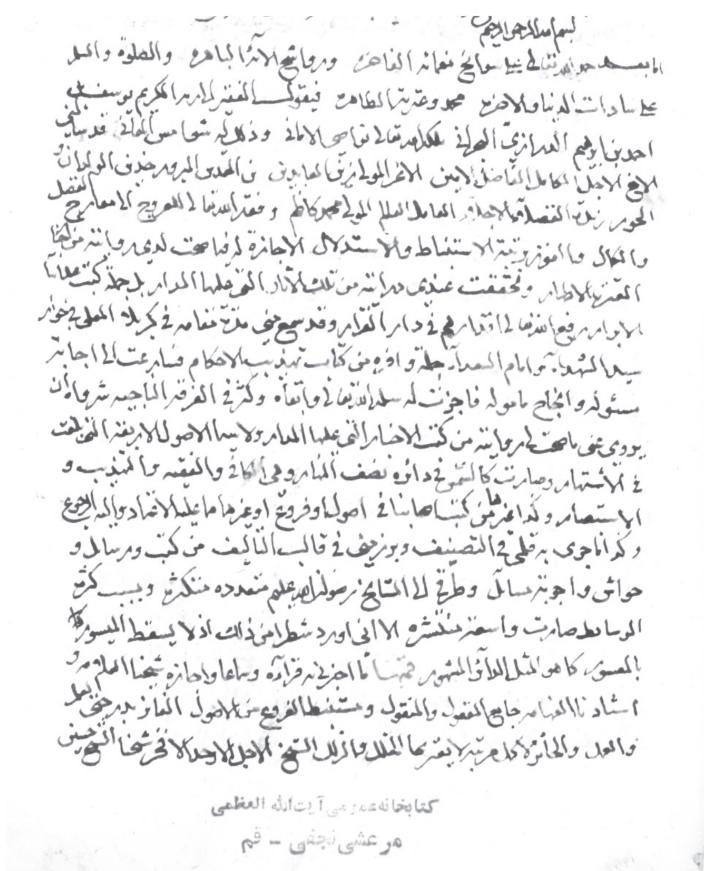 بسم الله الرحمن الرحيم
اما بعد حمد الله تعالى على سوابغ نعمائه الفاخرة و الآئه الباهرة والصلوة والسلم
على سادات الدنيا والاخرة محمد وعترته الطاهرة فيقول الفقير الى ربه الكريم يوسف بن
احمد بن ابرهيم البحراني ملكه الله تعالى نواصي الاماني وذلل له شوامس المعاني قد
الاخ الاجل الكامل الفاضل الامين الاغر المولى زين العابدين بن المبرور
المولى محمد كاظم وفقه الله تعالى للعروج الى معارج الفضل
والكمال والفوز برتبة الاستنباط والاستدلال الاجازة له فيما صحت لدي روايته من
العترة الاطهار وتحققت عندي درايته من تلك الآثار التي عليها المدار بل جملة كتب علمائنا
الابرار رفع الله تعالى اقدارهم في دار القرار وقد سمع مني مدة مقامه في كربلاء المعلى في جوار
سيد الشهداء وامام السعداء جملة وافرة من كتاب تهذيب الاحكام فسارعت الى اجابة
مسئوله وانجاح مأموله فاجزت له سلمه الله تعالى وابقاه وكثر في الفرقة الناجية شرواه ان
يروي عني ما صحت لي روايته من كتب الاخبار التي عليها المدار ولا سيما الاصول الاربعة التي بلغت
في الاشتهار وصارت كالشمس في دائرة نصف النهار وهي الكافي والفقيه والتهذيب و
الاستبصار وكذا غيرها من كتب اصحابنا في اصول او فروع او غيرهما مما عليه الاعتماد واليه الرجوع
وكذا ما جرى به قلمي في التصنيف وبرز مني في قالب التأليف من كتب ورسائل و
حواش واجوبة مسائل وطرقي الى المشايخ رضوان الله عليهم متعددة متكثرة وبسبب كثرة
الوسائط صارت واسعة منتشرة الا اني اورد شطرا من ذلك اذ لا يسقط الميسور
بالمعسور كما هو المثل المشهور فمنها ما اجزني به قراءة وسماعا واجازة شيخنا العلامة و
استادنا الفهامة جامع المعقول والمنقول ومستنبط الفروع من الاصول الفائز بدرجتي العلم
والعمل والحائز لكل مرتبة لا يعتريها الخلل والزلل الشيخ الاجل الاوحد الافخر شيخنا الشيخ حسين
كتابخانه عمومى آيت الله العظمى
مرعشى نجفى - قم